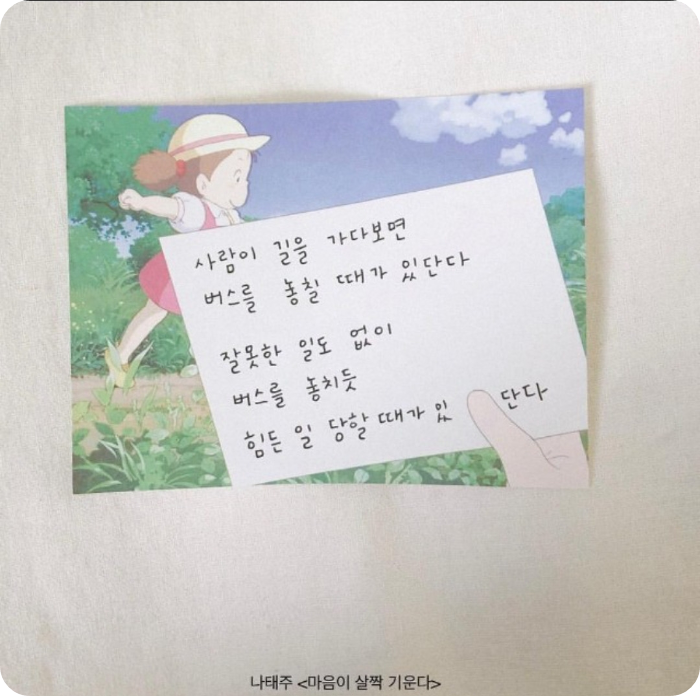 사람이 길을 가다보면
버스를 놓칠 때가 있단다
잘못한 일도 없이
버스를 놓치듯
힘든 일 당할 때가 있 단다
나태주 <마음이 살짝 기운다>